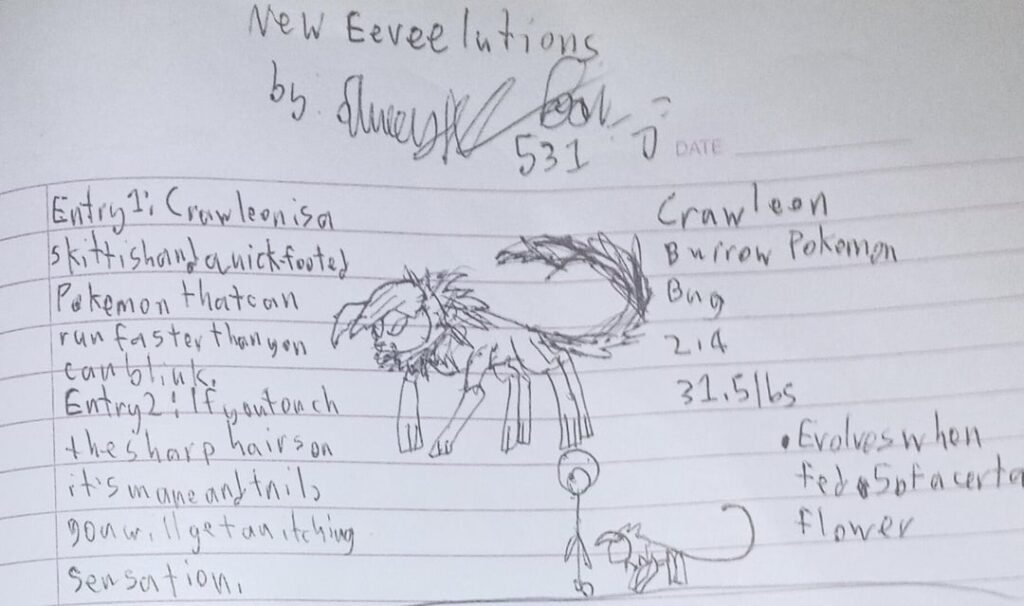 New Eeveelutions
by.
531
DATE
Entry 1: Crawleon is a
skittish and quick footed
Pokemon that can
run faster than you
can blink.
Entry 2: If you touch
the sharp hairs on
it's mane and tail,
you will get an itching
sensation.
Crawleon
Burrow Pokemon
Bug
2.4
31.5 lbs
• Evolves when
fed 5 of a certa
flower